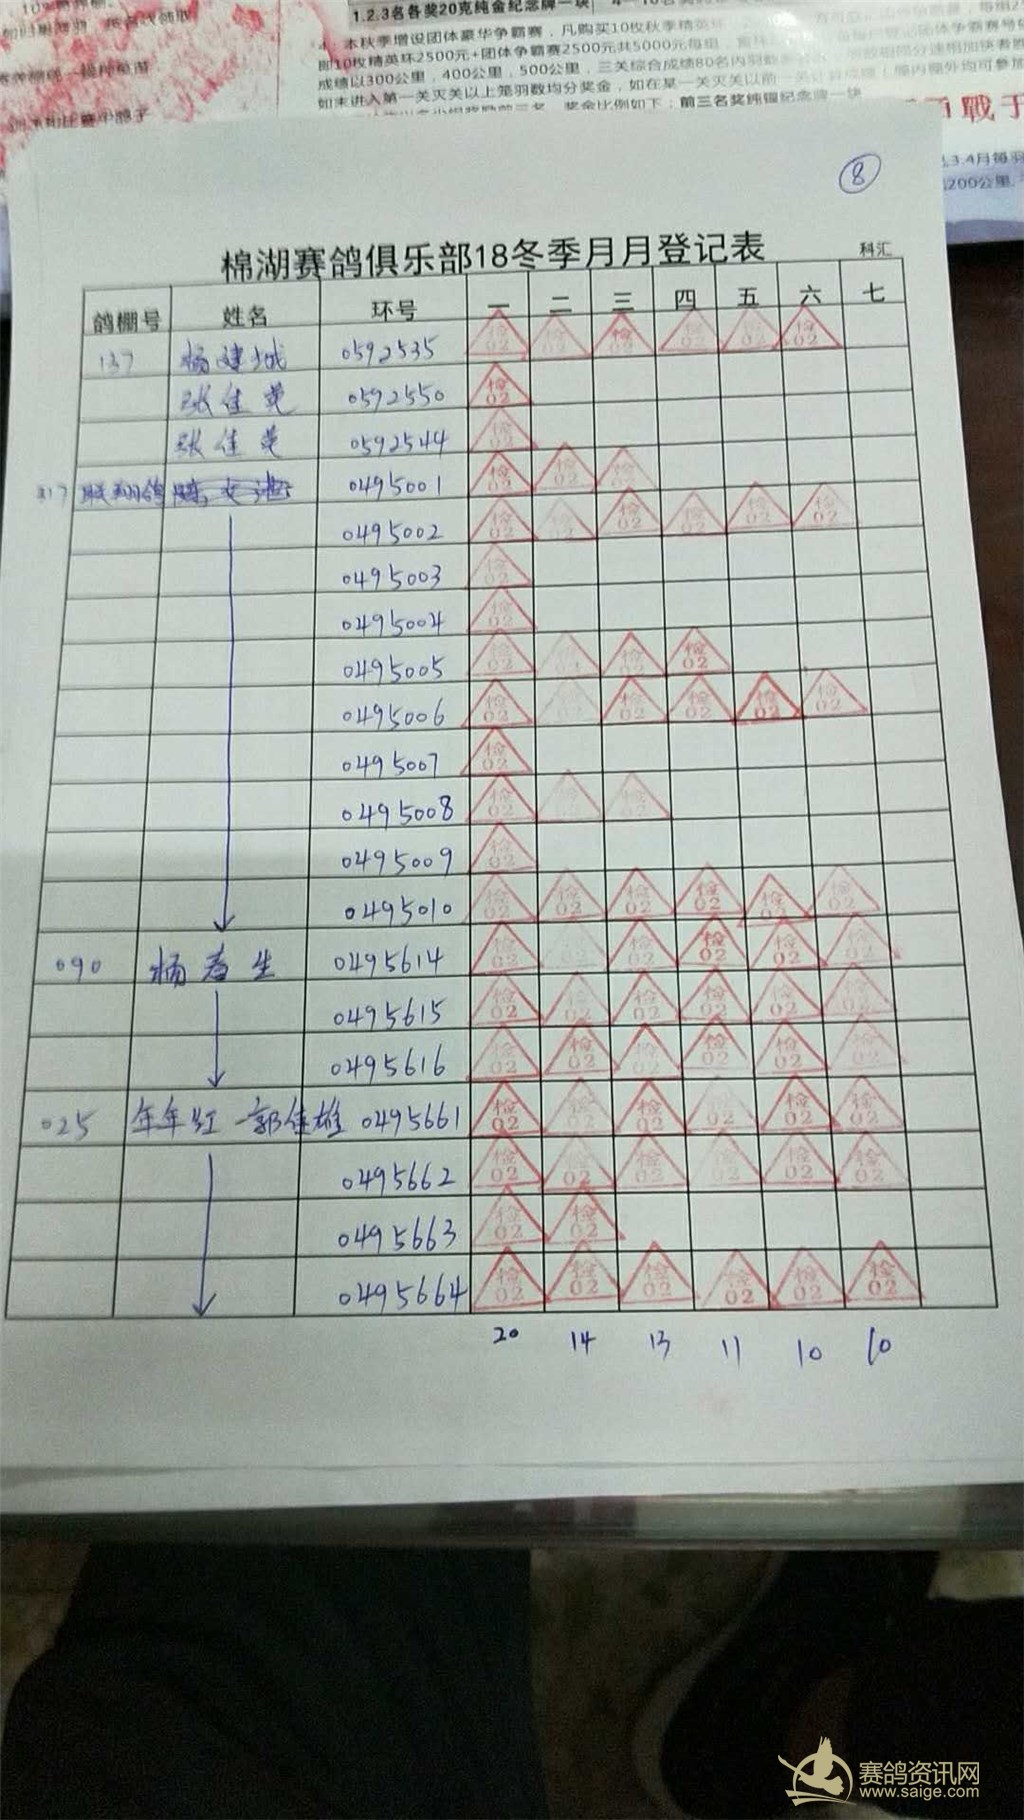 1.2.3名各奖20克纯金纪念牌一块
4、本秋季增设团体豪华争霸赛，凡购买10枚秋季精英环
即10枚精英环2500元+团体争霸赛2500元共5000元每组
成绩以300公里，400公里，500公里，三关综合成绩80名内羽数
如未进入第一关灭关以上笼羽数均分奖金，如在某一关灭关以前一关
奖金比例如下：前三名奖纯银纪念牌一块
戰于
3.4月每羽
200公里
8
棉湖赛鸽俱乐部18冬季月月登记表
科汇
鸽棚号 姓名 环号 一 二 三 四 五 六 七
137 杨建城 0592535 检02 检02 检02 检02 检02 检02
张佳英 0592550 检02
张佳英 0592544 检02
0495001 检02 检02 检02
0495002 检02 检02 检02 检02 检02 检02
0495003 检02
0495004 检02
0495005 检02 检02 检02 检02
0495006 检02 检02 检02 检02 检02 检02
0495007 检02
0495008 检02 检02 检02
0495009 检02
0495010 检02 检02 检02 检02 检02 检02
090 杨春生 0495614 检02 检02 检02 检02 检02 检02
0495615 检02 检02 检02 检02 检02 检02
0495616 检02 检02 检02 检02 检02 检02
025 年年红—郭佳雄 0495661 检02 检02 检02 检02 检02 检02
0495662 检02 检02 检02 检02 检02 检02
0495663 检02 检02
0495664 检02 检02 检02 检02 检02 检02
20 14 13 11 10 10
赛鸽资讯网
www.saige.com